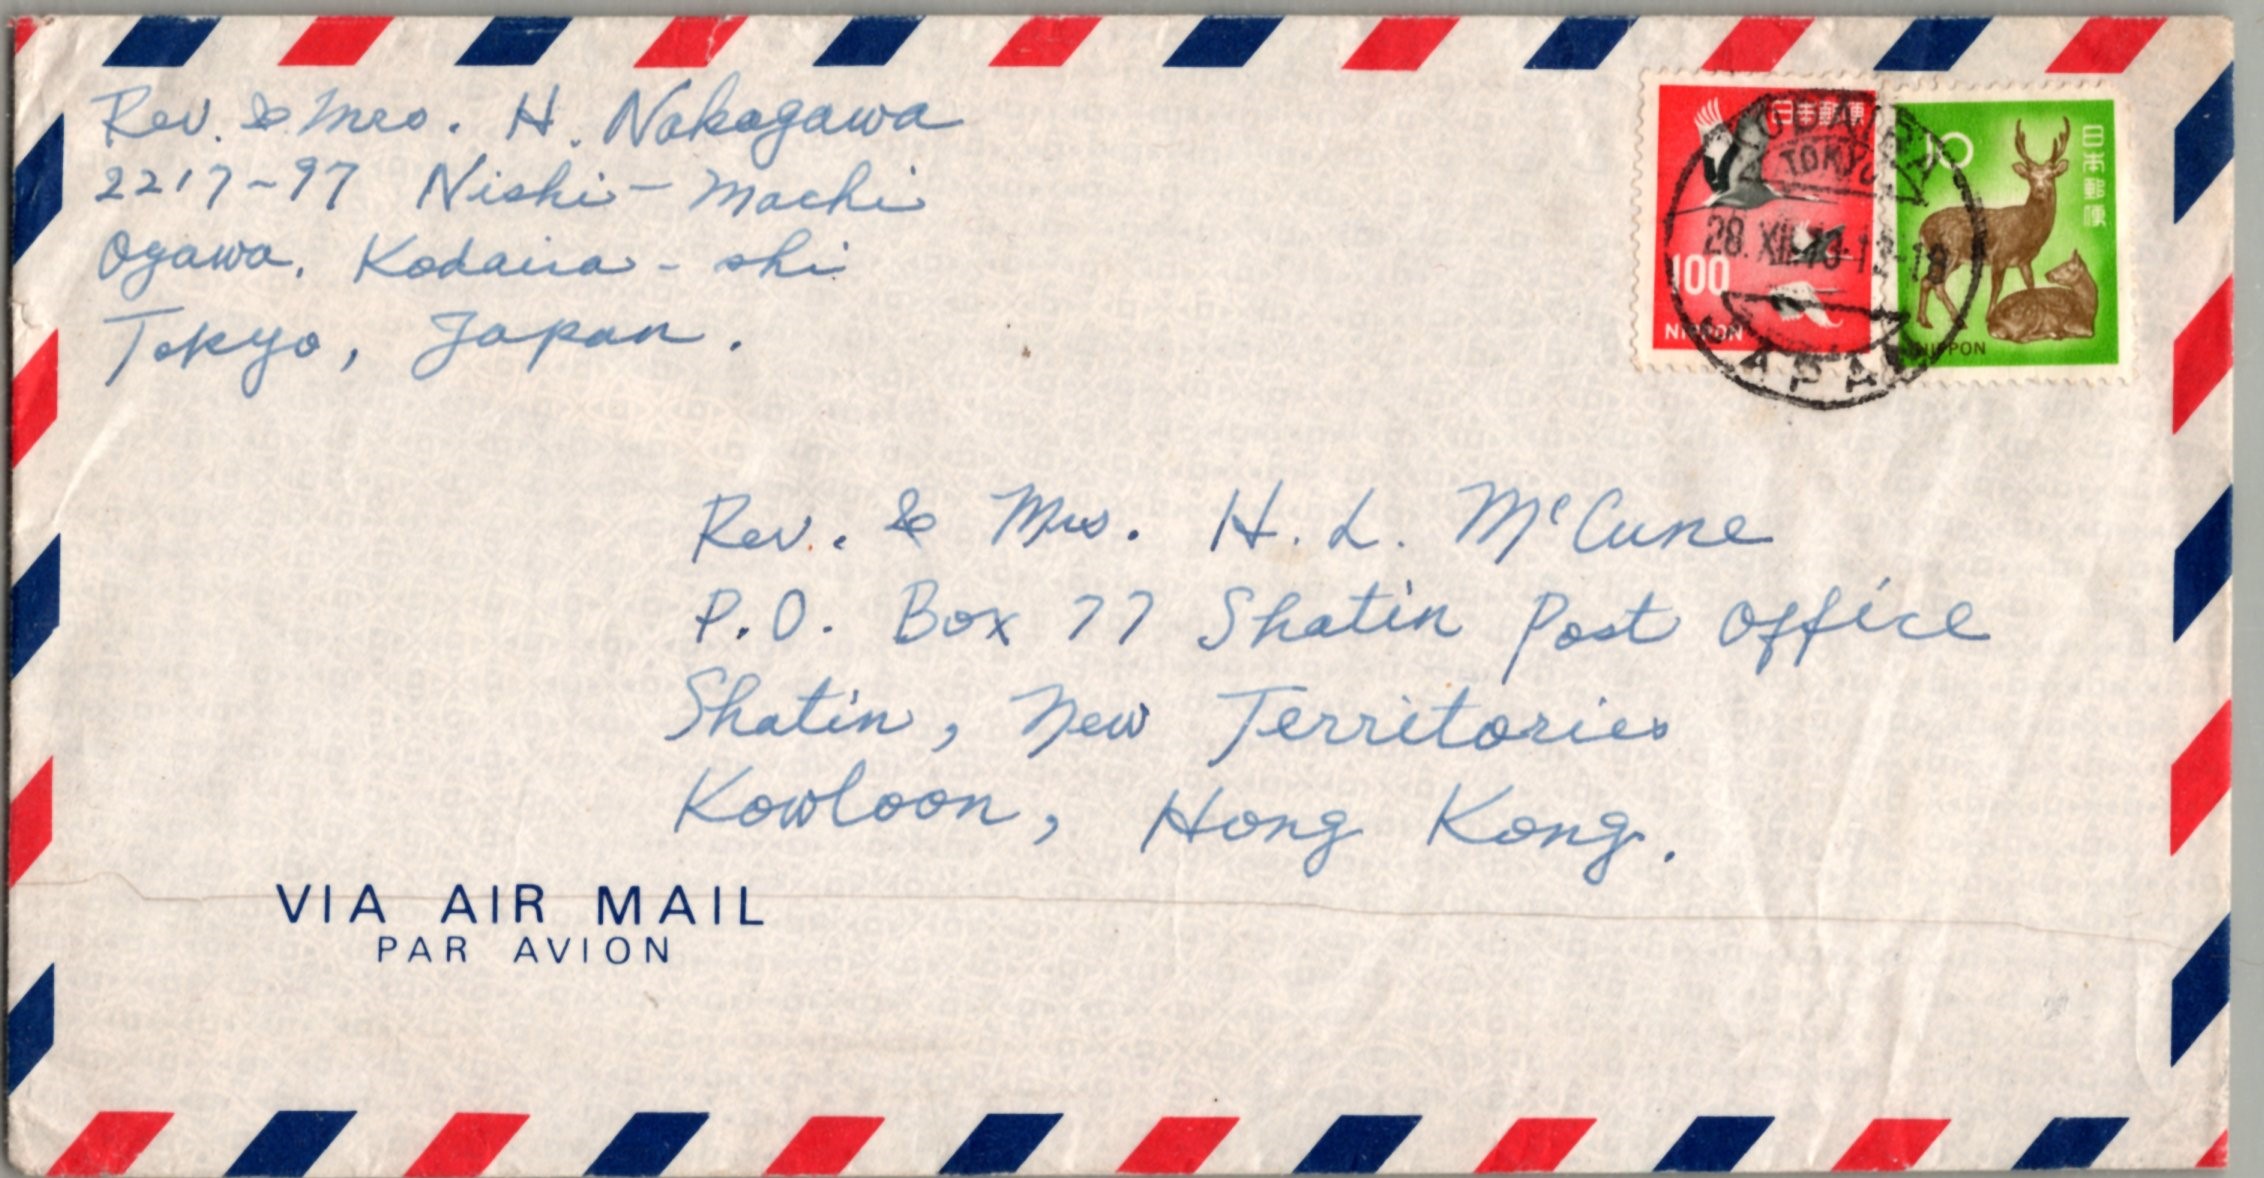 Rev. & Mrs. H. Nakagawa
2217-97 Nishi-Machi
Ogawa. Kodaira-shi
Tokyo, Japan.
日本郵便
100
NIPPON
10
日本郵便
NIPPON
KODAIRA
TOKYO
28. XII. 73-12-18
JAPAN
Rev. & Mrs. H. L. McCune
P.O. Box 77 Shatin Post Office
Shatin, New Territories
Kowloon, Hong Kong.
VIA AIR MAIL
PAR AVION